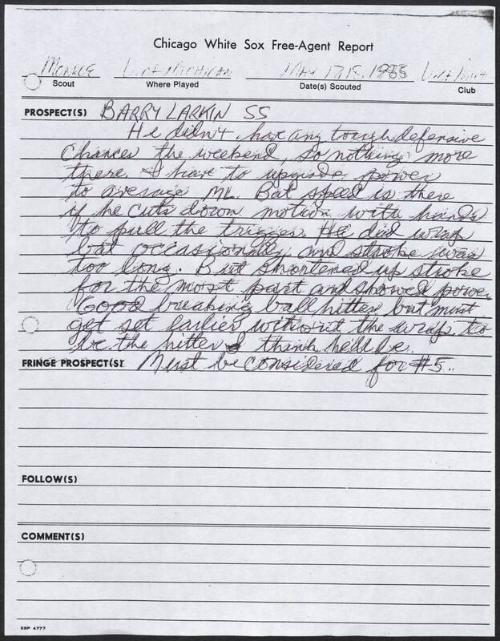 Chicago White Sox Free-Agent Report
Monroe Univ Michigan May 17 18, 1985
Scout Where Played Date(s) Scouted Club
PROSPECT(S) BARRY LARKIN SS
He didn't have any tough defensive
chances the weekend, so nothing more
there. I have to upgrade power
to average ML. Bat speed is there
if he cuts down motion with hands
to pull the trigger. He did wrap
bat occasionally and stroke was
too long. But shortened up stroke
for the most part and showed power.
Good breaking ball hitter but must
get set earlier without the wrap to
be the hitter I think he'll be.
FRINGE PROSPECT(S) Must be considered for #5.
FOLLOW(S)
COMMENT(S)